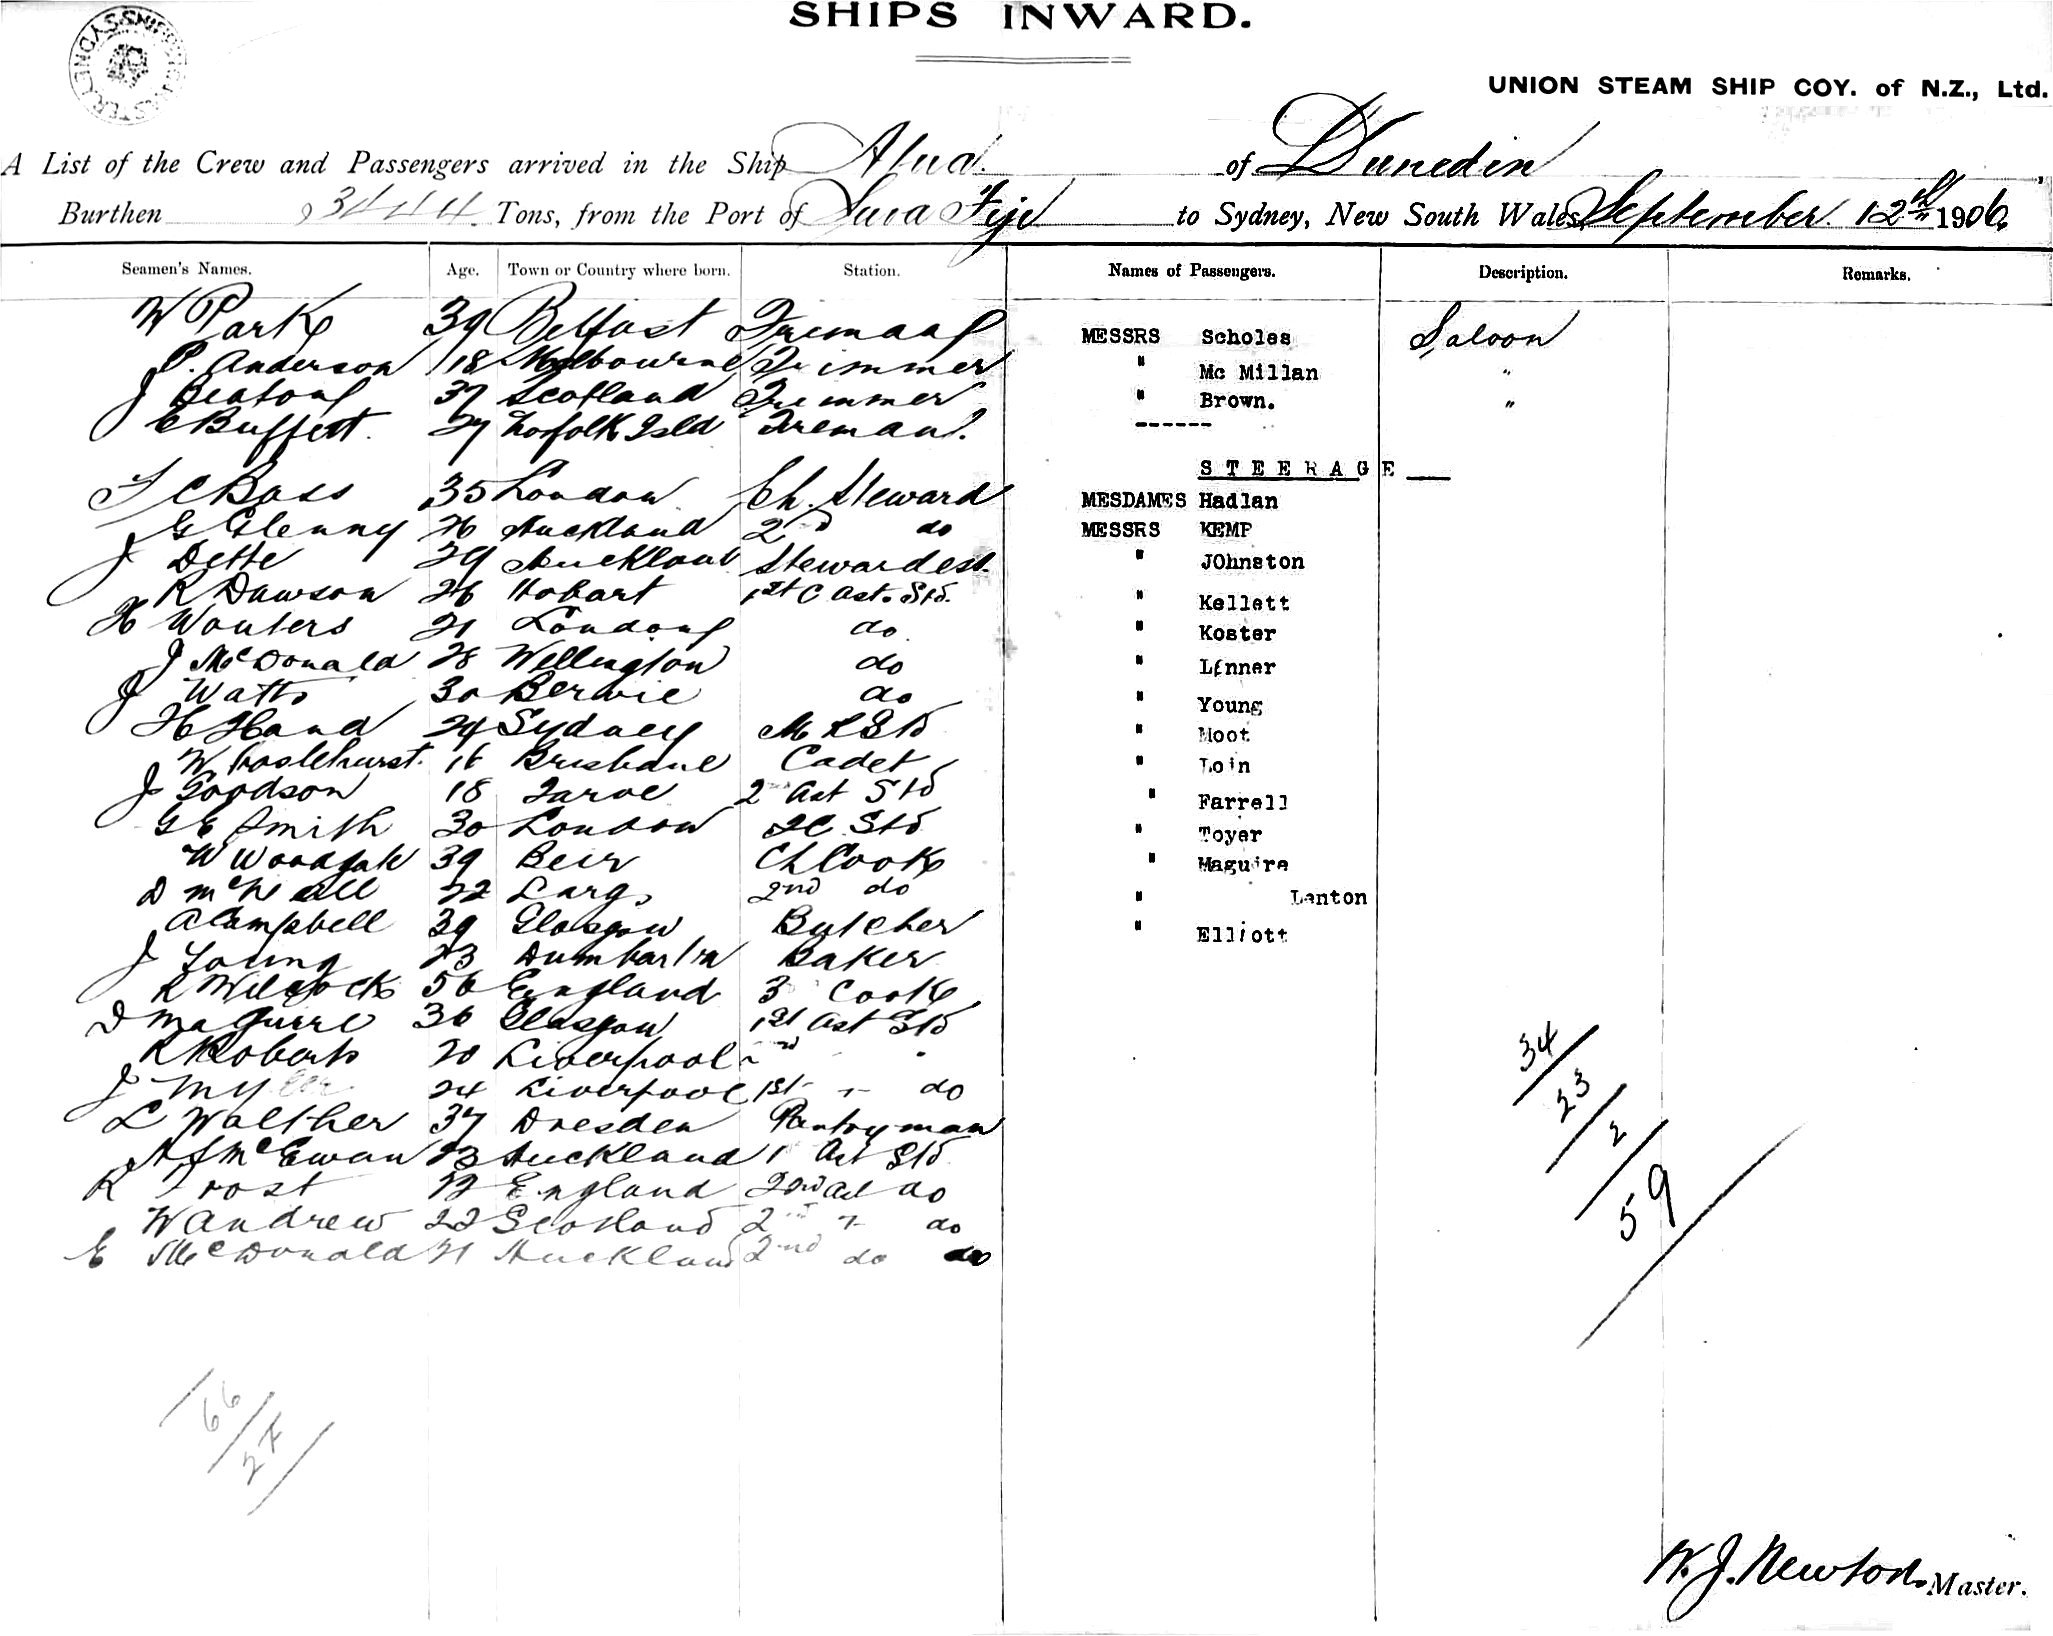 SHIPS INWARD.
UNION STEAM SHIP COY. of N.Z., Ltd.
A List of the Crew and Passengers arrived in the Ship Atua of Dunedin,
Burthen 3444 Tons, from the Port of Suva Fiji to Sydney, New South Wales, September 12th 1906.
Seamen's Names. Age. Town or Country where born. Station. Names of Passengers. Description. Remarks.
W Park 39 Belfast Fireman
P. Anderson 18 Melbourne Trimmer
J Beaton 37 Scotland Trimmer
C Buffett. 27 Norfolk Isld Fireman.
F C Bass 35 London Ch. Steward
G Glenny 26 Auckland 2nd do
J Dette 29 Auckland Stewardess.
R Dawson 26 Hobart 1st C Ast. Std.
H Wouters 21 London do
J McDonald 28 Wellington do
J Watts 30 do
H Hand 24 Sydney M R Std
W Haslehurst. 16 Brisbane Cadet
J Goodson 18 2nd Ast Std
G E Smith 30 London 2C Std
W Woodgate 39 Beer Ch Cook
D McNeill 22 Largs 2nd do
A Campbell 39 Glasgow Butcher
J Young 23 Dumbarton Baker
R Wilcocks 56 England 3 Cook
D Maguire 36 Glasgow 1st Ast Std
R Roberts 20 Liverpool 2nd
J 24 Liverpool 1st do
L Walther 37 Dresden Pantryman
A J McEwan 23 Auckland 1 Ast Std
R Frost 22 England 2nd Ast do
W Andrew 22 Scotland 2nd do
E McDonald 21 Auckland 2nd do do
MESSRS Scholes Saloon
" Mc Millan "
" Brown. "
------
STEERAGE
MESDAMES Hadlan
MESSRS KEMP
" JOhnston
" Kellett
" Koster
" Linner
" Young
" Moot
" Loin
" Farrell
" Toyer
" Maguire
" Lenton
" Elliott
34
23
2
59
66
27
W. J. Newton. Master.